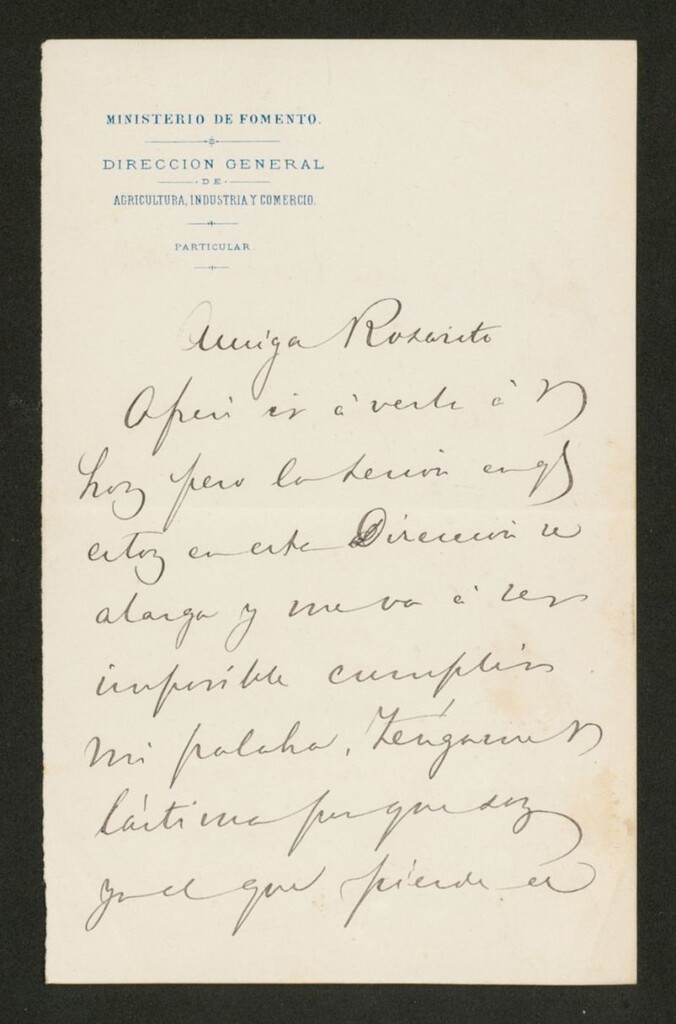 MINISTERIO DE FOMENTO.
DIRECCION GENERAL
DE
AGRICULTURA, INDUSTRIA Y COMERCIO.
PARTICULAR.
Amiga Rosarito
Ofreci ir á verla á V
hoy pero la sesión en q
estoy en esta Dirección se
alarga y me va á ser
imposible cumplir
mi palabra. Téngame V
lástima porque soy
yo el que pierde en